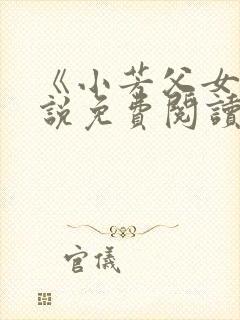 《小芳父女
説免費閱讀
官儀